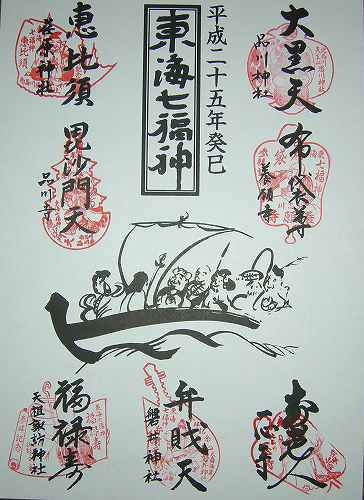 大黒天
品川神社
布袋尊
養願寺
寿老人
一心寺
平成二十五年癸巳
東海七福神
恵比須
荏原神社
毘沙門天
品川寺
弁財天
磐井神社
福禄寿
天祖諏訪神社